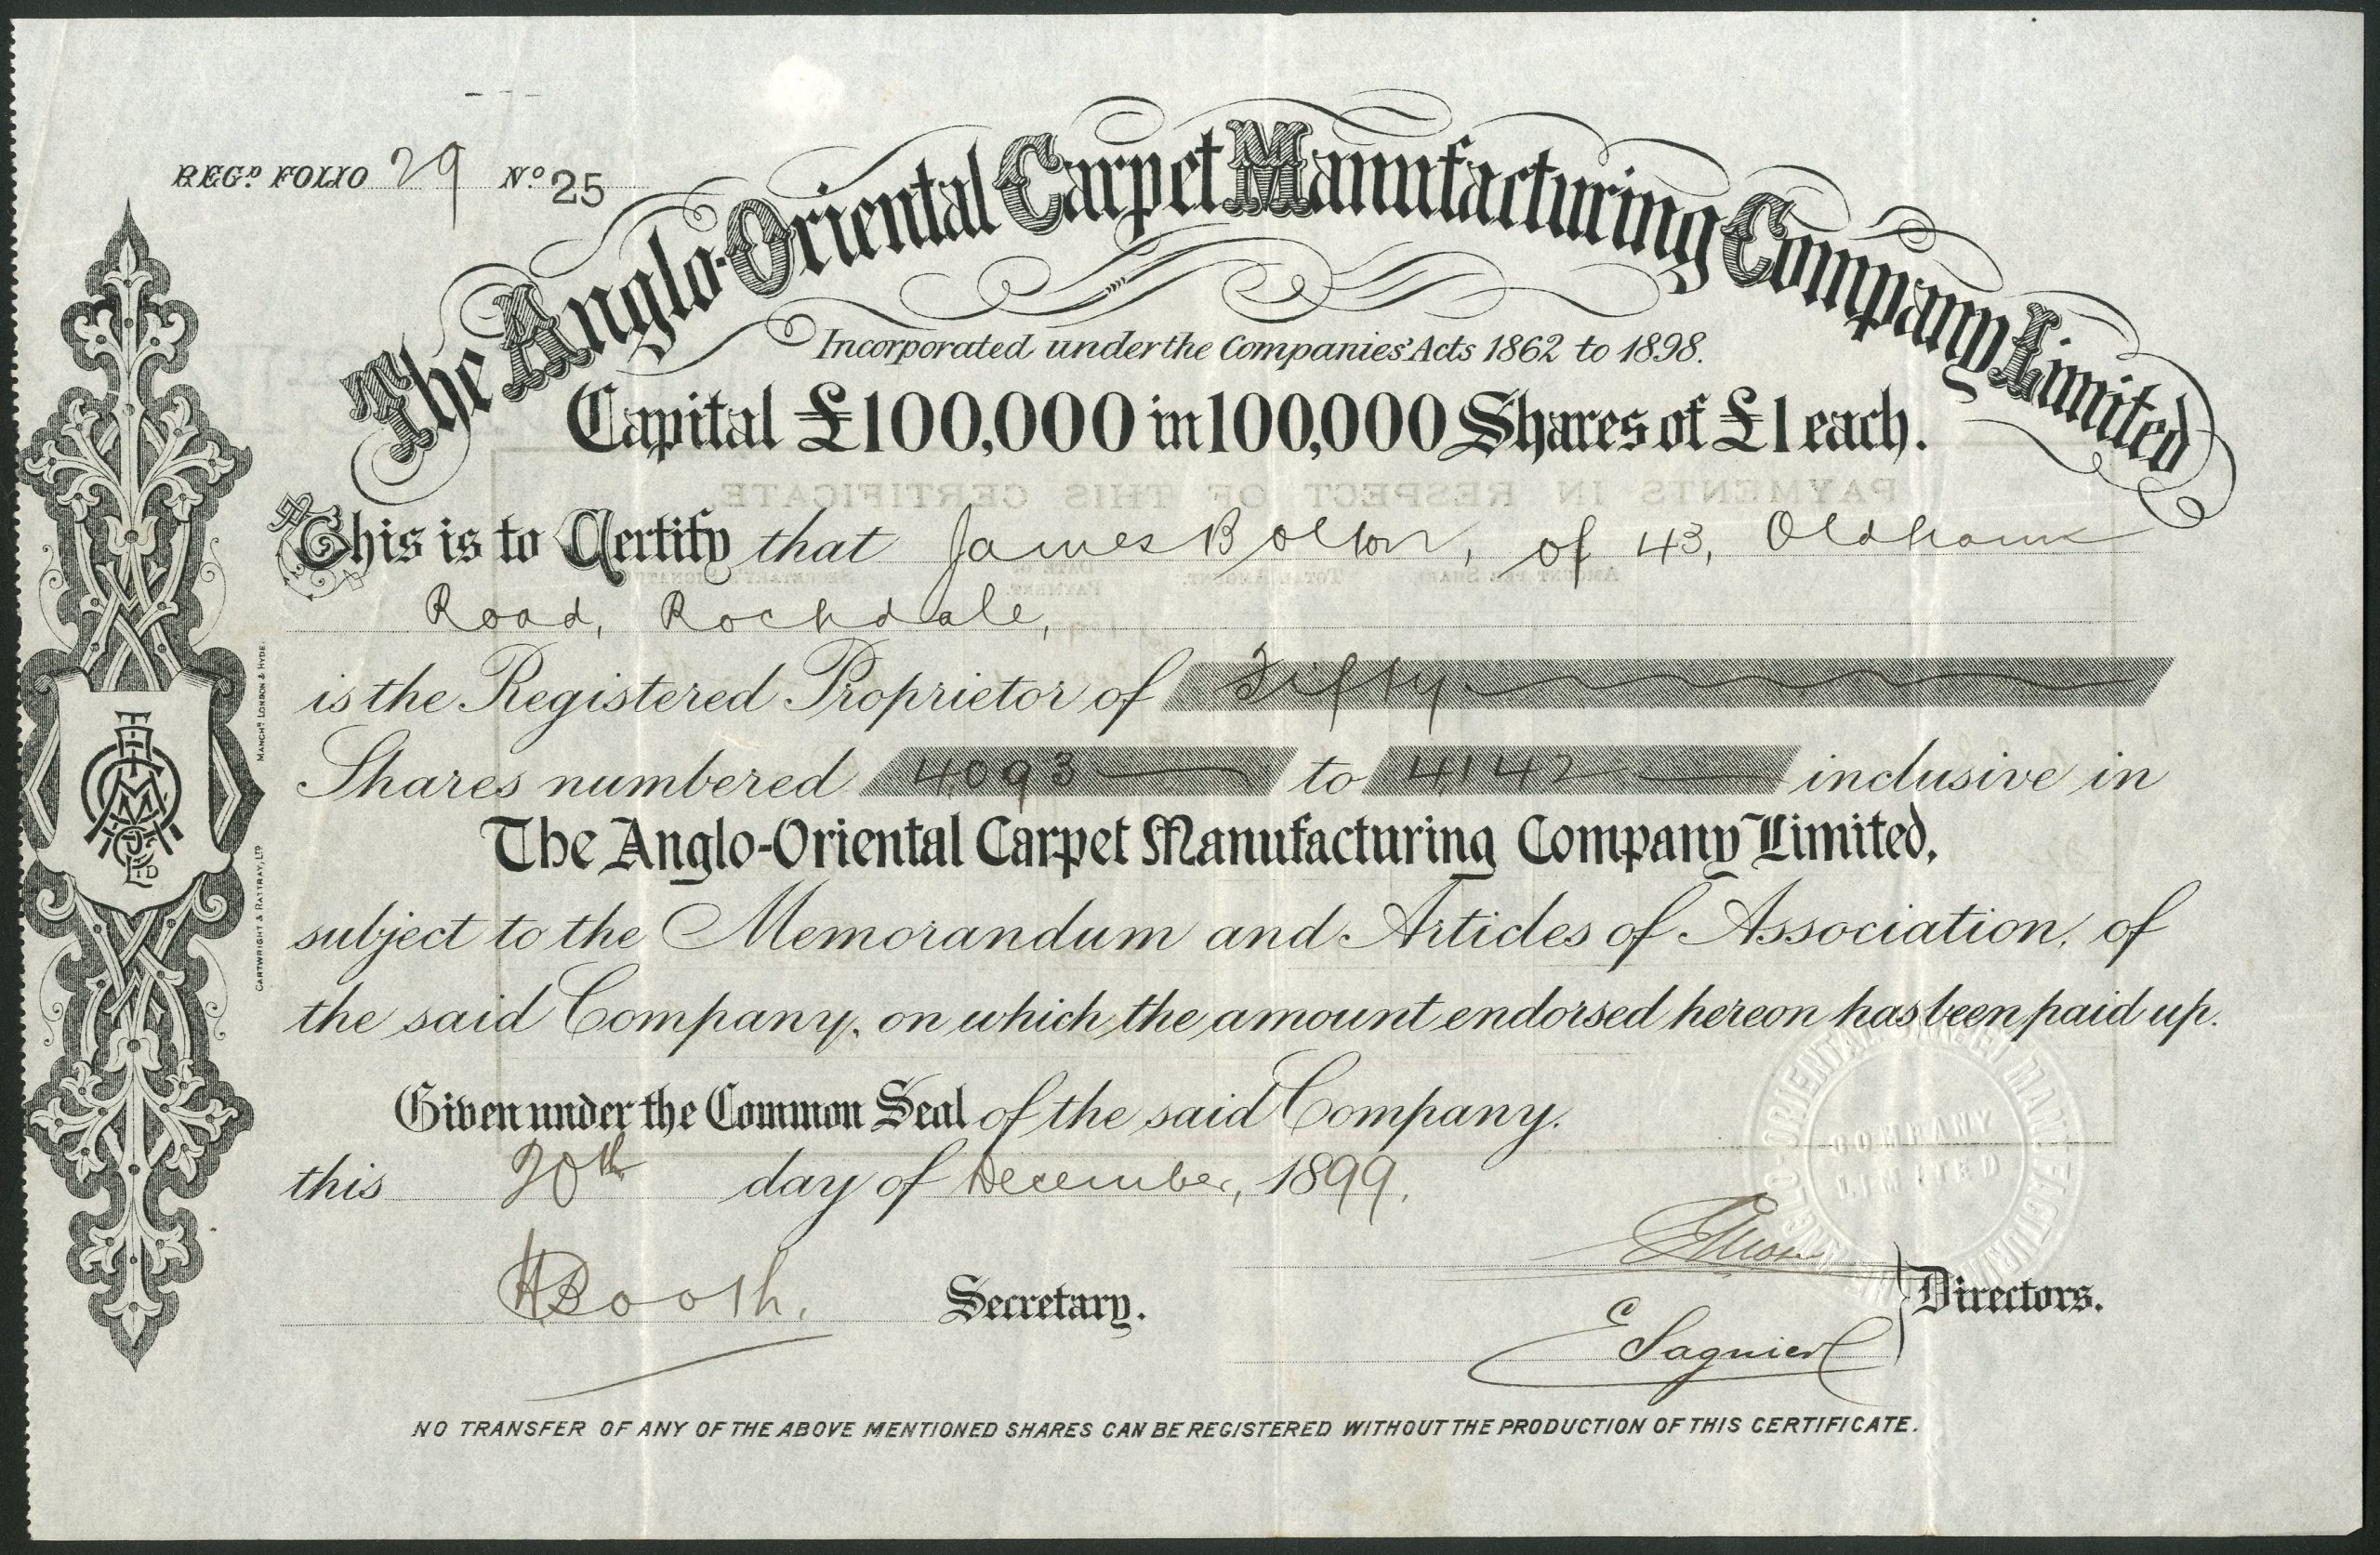 REGD FOLIO 29 No 25
The Anglo-Oriental Carpet Manufacturing Company Limited
Incorporated under the Companies' Acts 1862 to 1898.
Capital £100,000 in 100,000 Shares of £1 each.
PAYMENTS IN RESPECT OF THIS CERTIFICATE.
This is to Certify that James Bolton, of 43, Oldham
AMOUNT PER SHARE. TOTAL AMOUNT. DATE OF PAYMENT. SECRETARY'S SIGNATURE.
Road, Rochdale,
is the Registered Proprietor of Fifty
Shares numbered 4093 to 4142 inclusive in
The Anglo-Oriental Carpet Manufacturing Company Limited,
subject to the Memorandum and Articles of Association, of
the said Company, on which the amount endorsed hereon has been paid up.
Given under the Common Seal of the said Company.
this 20th day of December, 1899.
ANGLO-ORIENTAL CARPET MANUFACTURING
COMPANY
LIMITED
HBooth. Secretary.
Directors.
E Sagnier
NO TRANSFER OF ANY OF THE ABOVE MENTIONED SHARES CAN BE REGISTERED WITHOUT THE PRODUCTION OF THIS CERTIFICATE.
CARTWRIGHT & RATTRAY, LTD MANCHR LONDON & HYDE.
LTD